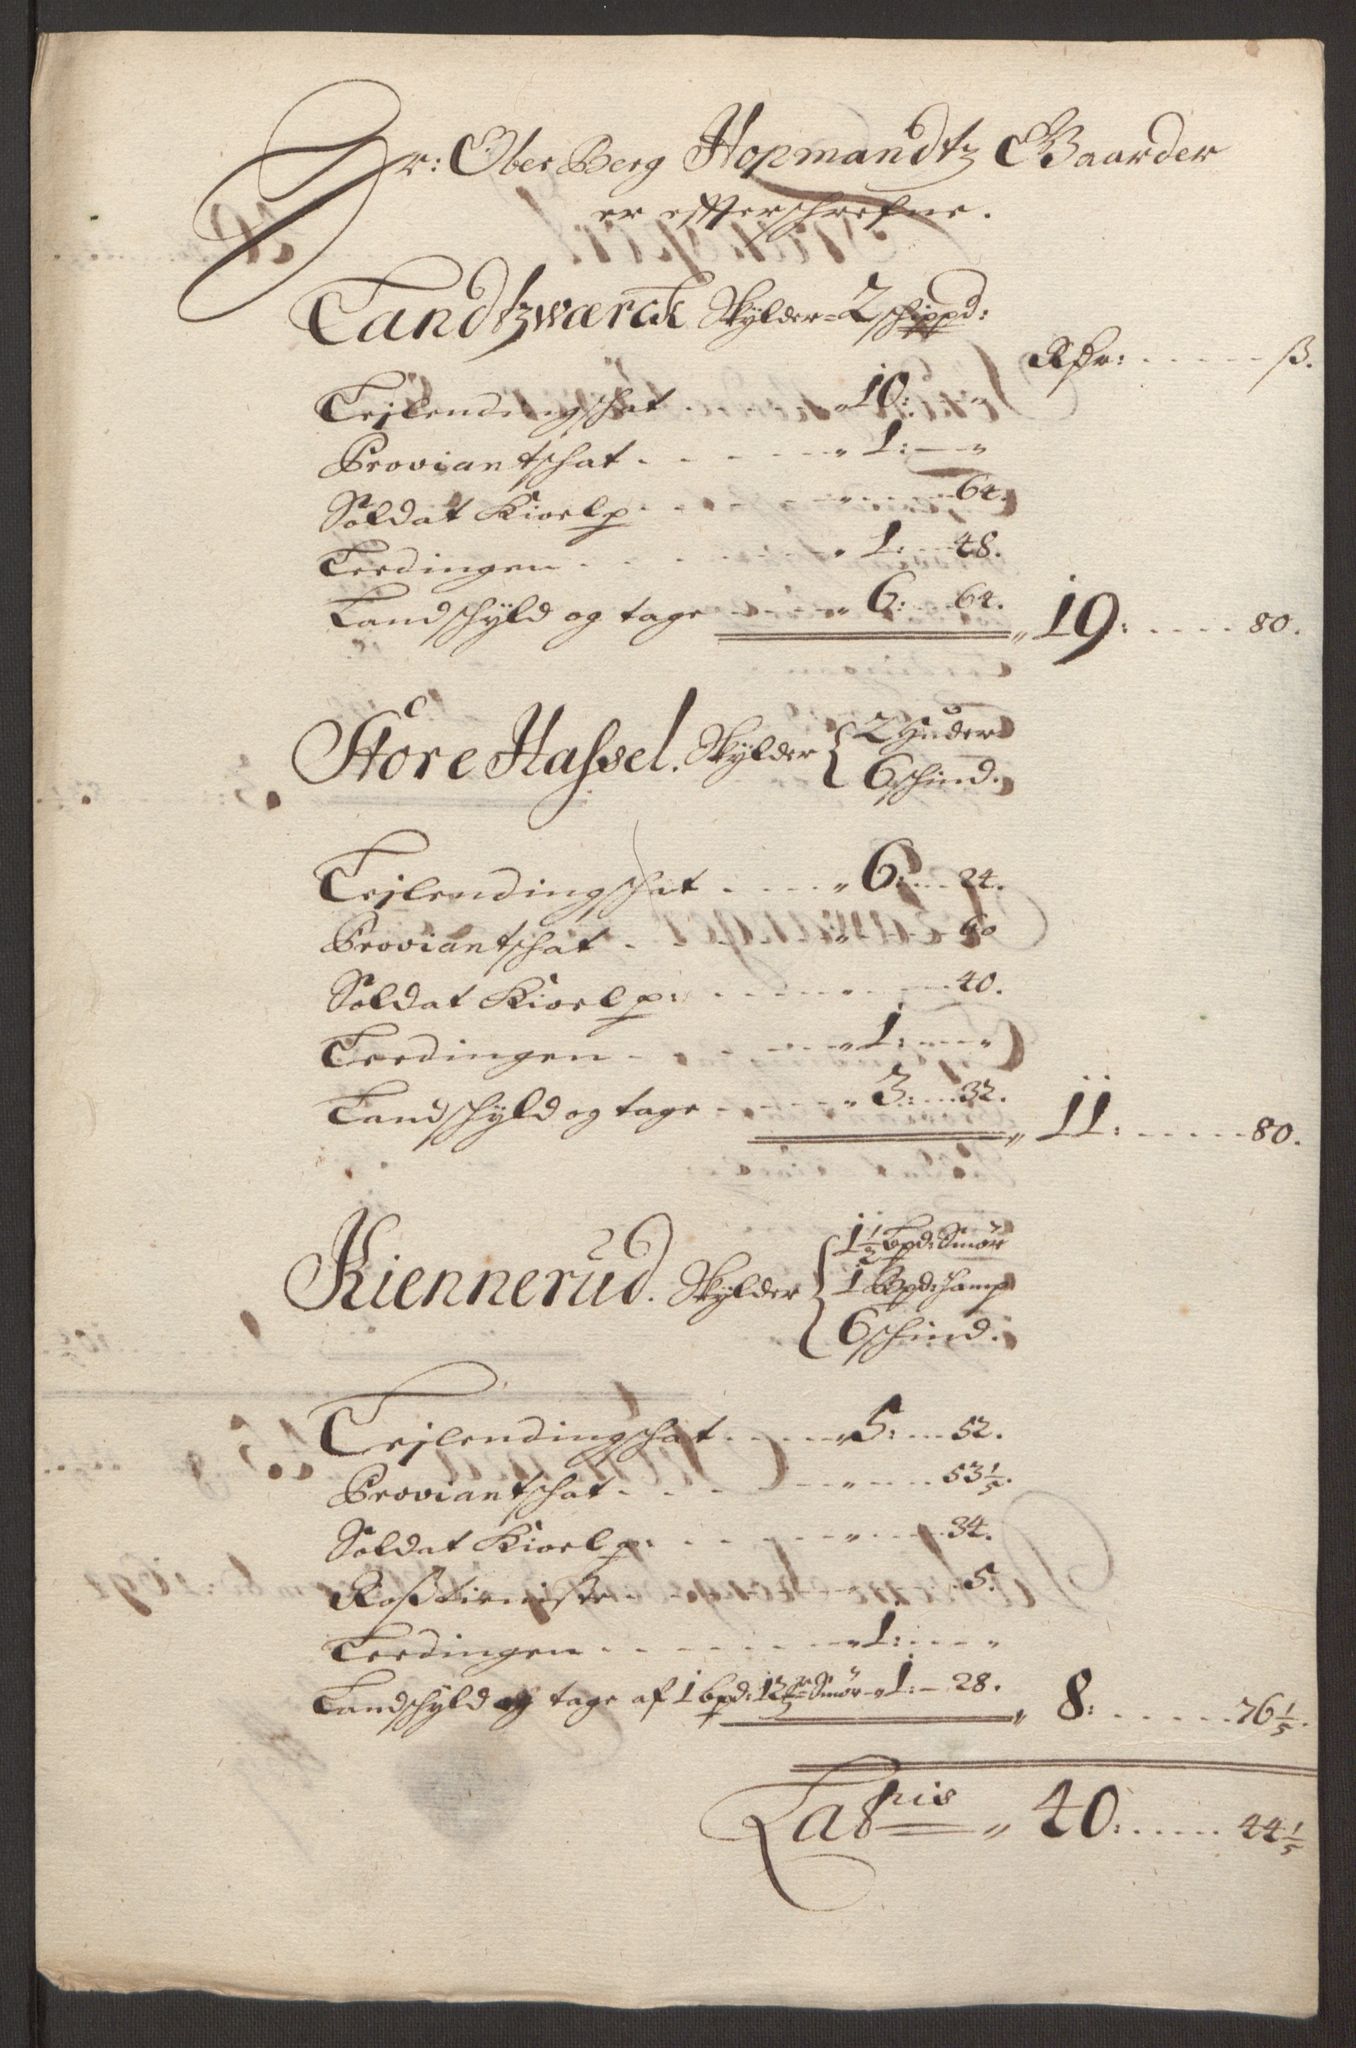 Hr: Ober Berg Hopmandtz Gaarder
er effterschrefne.
Landtzwærck Skylder = 2 schippd:
Rdr: ß.
Leilendingschat 10:
Proviantschat 1:
Soldat Kioelp 64.
Leedingen 1: 48.
Landschyld og tage 6: 64. 19: 80.
Store Hassel. Skylder 2 Huder
6 schind.
Leilendingschat 6: 24.
Proviantschat 60
Soldat Kioelp: 40.
Leedingen 1:
Landschyld og tage 3: 32. 11: 80.
Kiennerud. Skylder 1½ bpd: Smör
1 Bpd: hamp
6 schind.
Leilendingschat 5: 52.
Proviantschat 53 1/5.
Soldat Kioelp: 34.
Rosstienniste 5.
Leedingen 1:
Landschyld og tage af 1 bpd: Smör 1: 28. 8: 76 1/5.
Lateris 40: 44 1/5